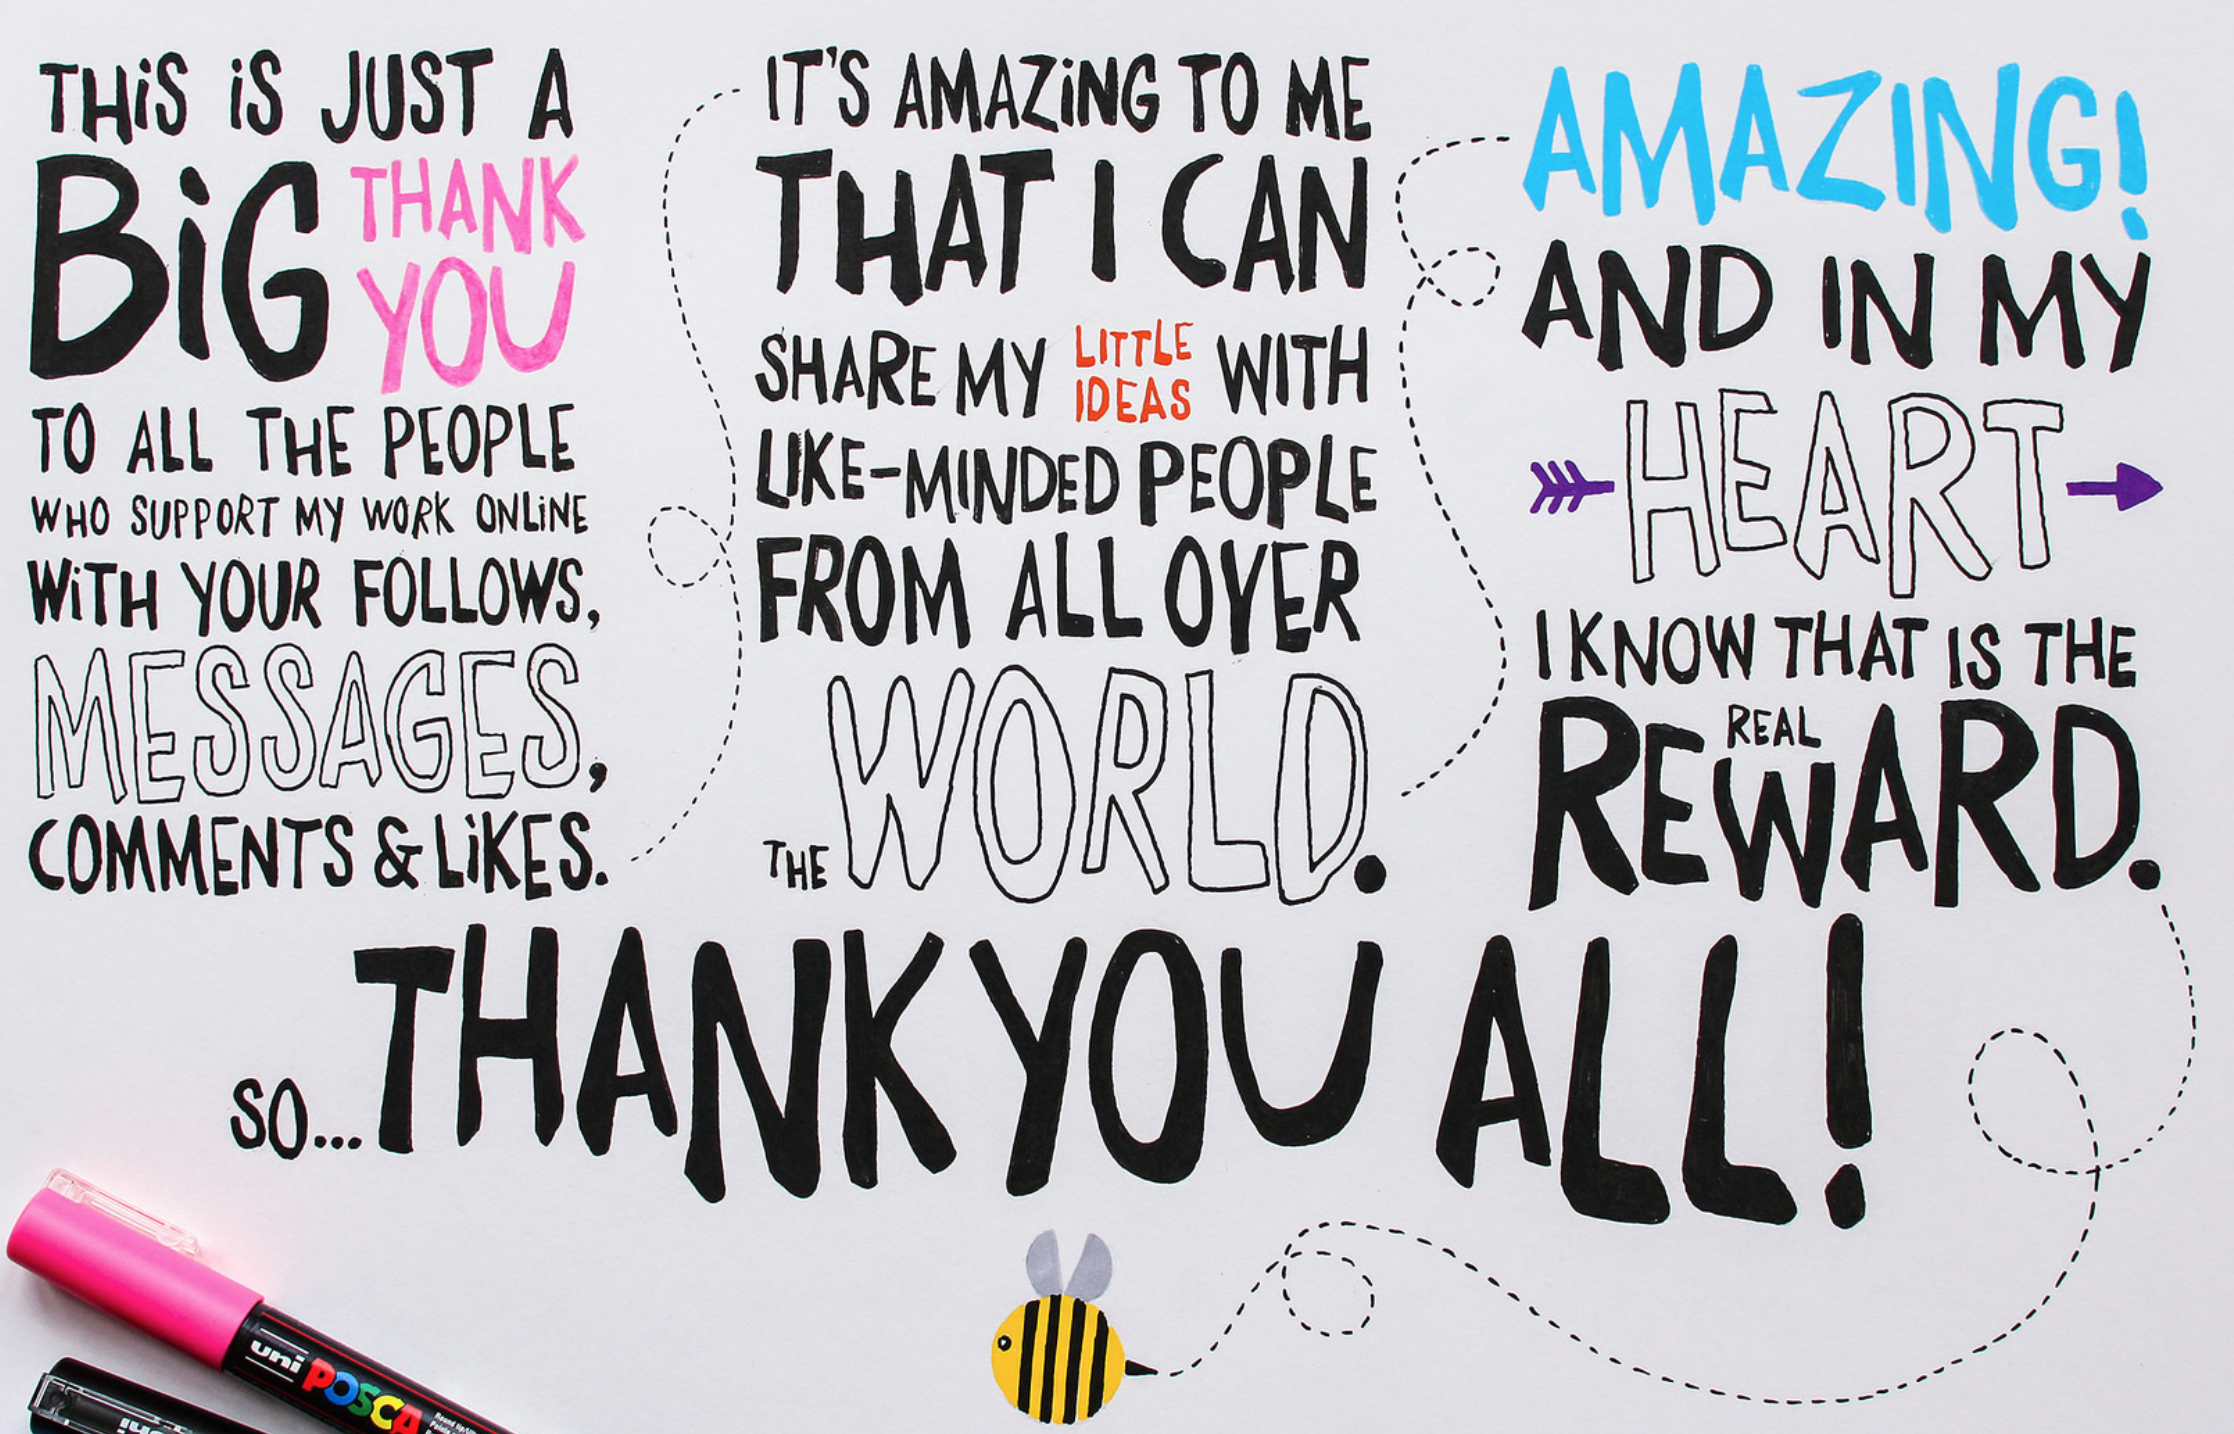 THiS iS JUST A
BiG THANK YOU
TO ALL THE PEOPLE
WHO SUPPORT MY WORK ONLiNE
WiTH YOUR FOLLOWS,
MESSAGES,
COMMENTS & LiKES.
IT'S AMAZiNG TO ME
THAT I CAN
SHARE MY LITTLE IDEAS WITH
LIKE-MINDED PEOPLE
FROM ALL OVER
THE WORLD.
AMAZING!
AND IN MY
HEART
I KNOW THAT IS THE
REAL
REWARD.
SO... THANK YOU ALL!
uni POSCA
uni